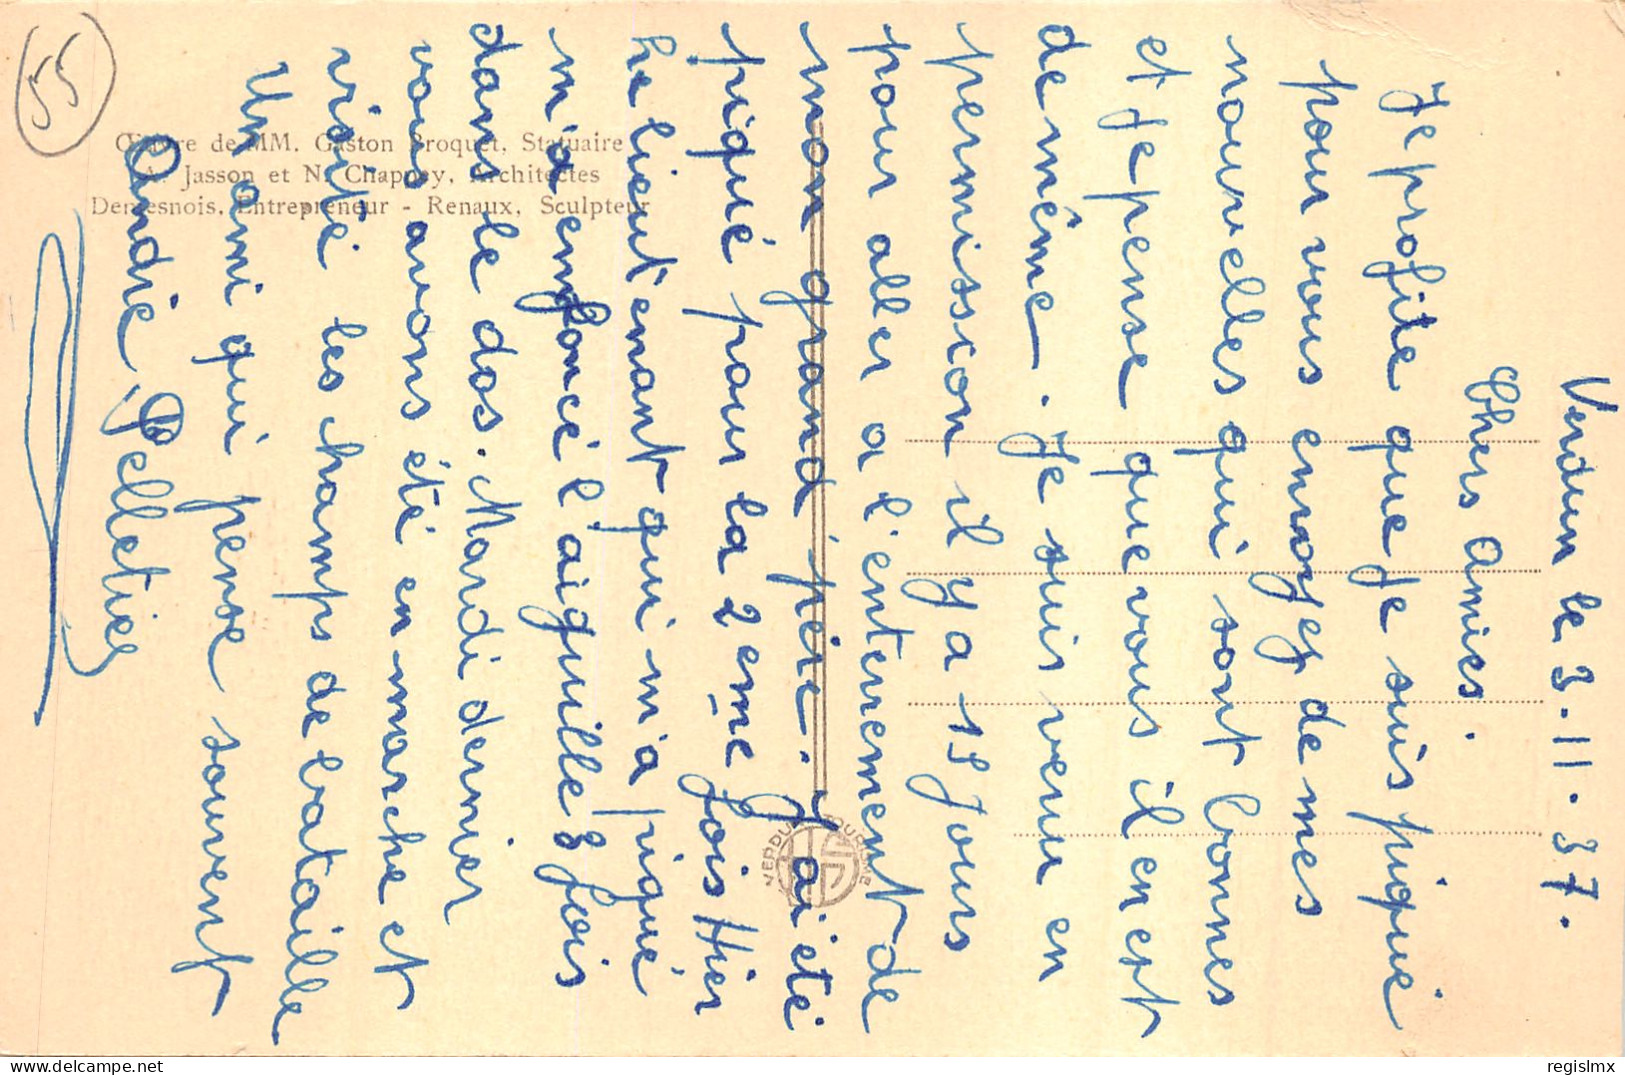 55
Œuvre de MM. Gaston Broquet, Statuaire
A. Jasson et N. Chaprey, Architectes
Demesnois, Entrepreneur - Renaux, Sculpteur
VERDUN TOURISME
Verdun le 3.11.37.
Chers Amies.
Je profite que Je suis piquié
pour vous envoyez de mes
nouvelles qui sont bonnes
et Je pense que vous il en est
de même. Je suis venu en
permission il y a 15 Jours
pour aller a l'enterrement de
mon grand' père. J'ai été
piquié pour la 2eme fois Hier
he lieutenant qui m'a piquié
m'a enfoncé l'aiguille 3 fois
dans le dos. Mardi dernier
vous avons été en marche et
visité les champs de bataille
Un ami qui pense souvent
André Pelletier
regislmx